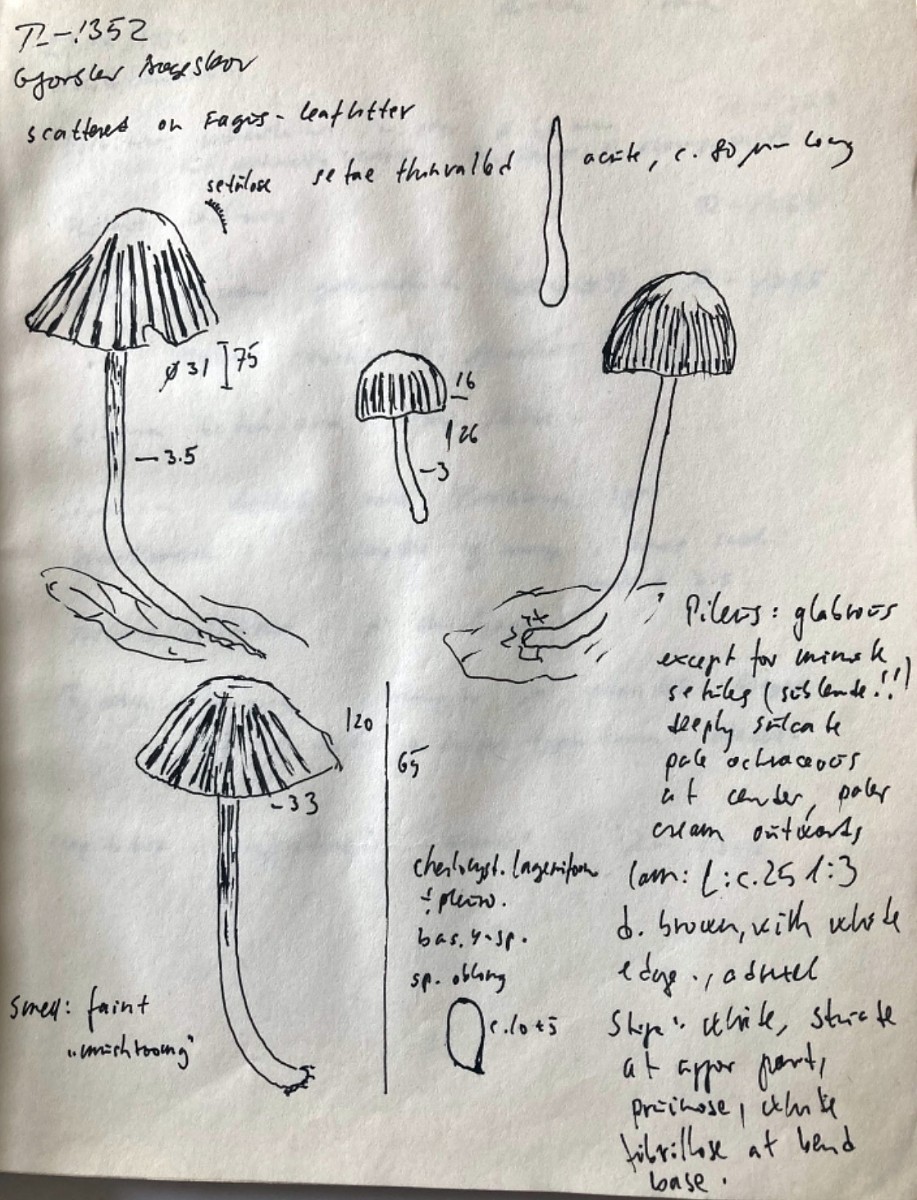 TL-1352
Gjorslev Bøgeskov
scattered on Fagus-leaflitter
setulose setae thinwalled acute, c. 80 µm long
ø 31 ] 75
16
26
3.5
3
Pileus: glabrous
except for minute
setules (sublente!!)
deeply sulcate
pale ochraceous
at center, paler
cream outwards,
120
33
65
cheilocyst. lageniform
÷ pleuro.
bas. 4-sp.
sp. oblong
c. 10 × 5
lam: L: c. 25 l: 3
d. brown, with white
edge., adnate
Stipe: white, striate
at upper part,
pruinose, white
fibrillose at bend
base.
Smell: faint
"mushroomy"